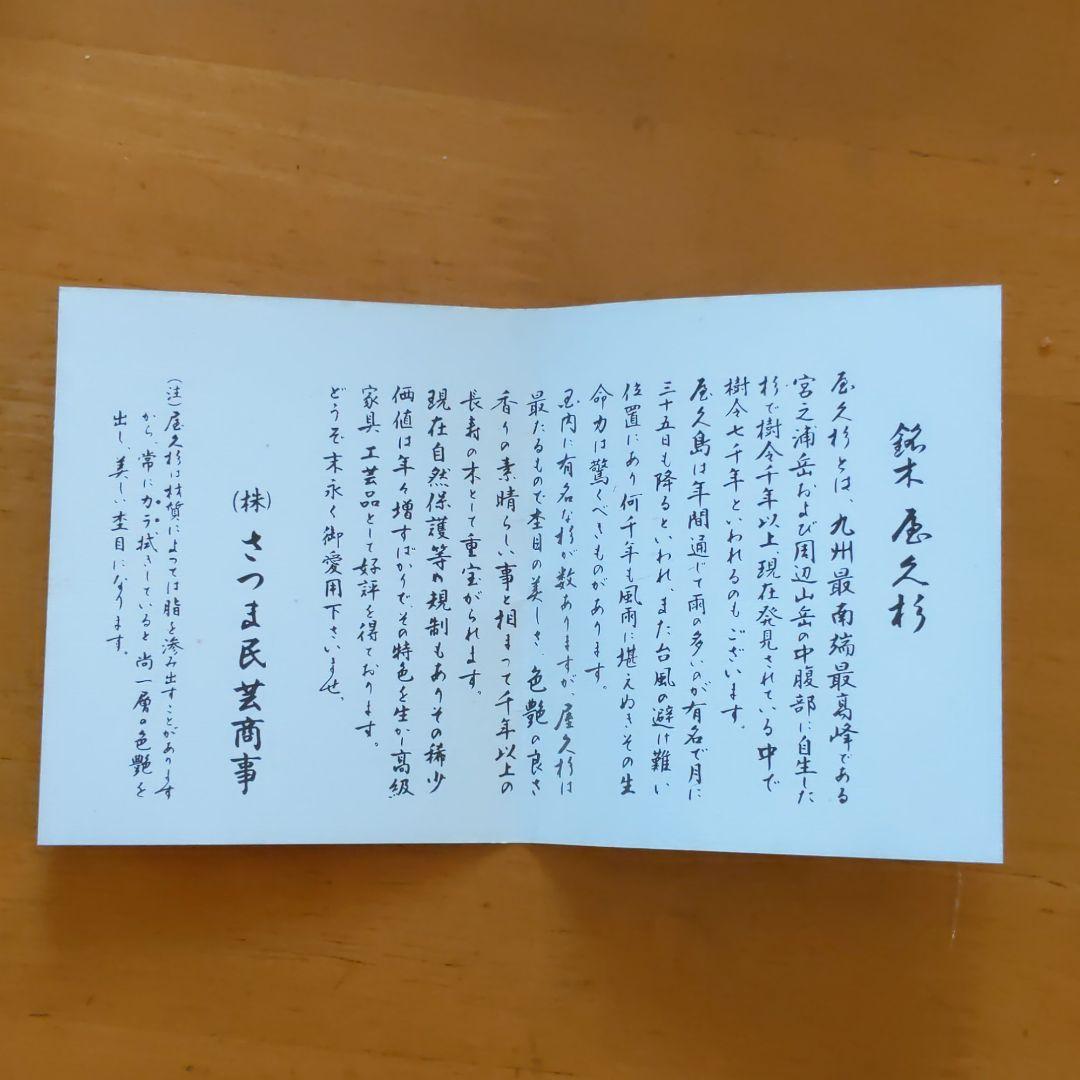 銘木 屋久杉
屋久杉とは、九州最南端最高峰である
宮之浦岳および周辺山岳の中腹部に自生した
杉で樹令千年以上、現在発見されている中で
樹令七千年といわれるのもございます。
屋久島は年間通じて雨の多いのが有名で月に
三十五日も降るといわれ、また台風の避け難い
位置にあり何千年も風雨に堪えぬきその生
命力は驚くべきものがあります。
国内に有名な杉が数ありますが、屋久杉は
最たるもので杢目の美しさ、色艶の良さ
香りの素晴らしい事と相まって千年以上の
長寿の木として重宝がられます。
現在自然保護等の規制もありその稀少
価値は年々増すばかりで、その特色を生かし高級
家具、工芸品として好評を得ております。
どうぞ末永く御愛用下さいませ、
(株)さつま民芸商事
(注)屋久杉は材質によっては脂を滲み出すことがあります
から、常にカラ拭きしていると尚一層の色艶を
出し、美しい杢目になります。